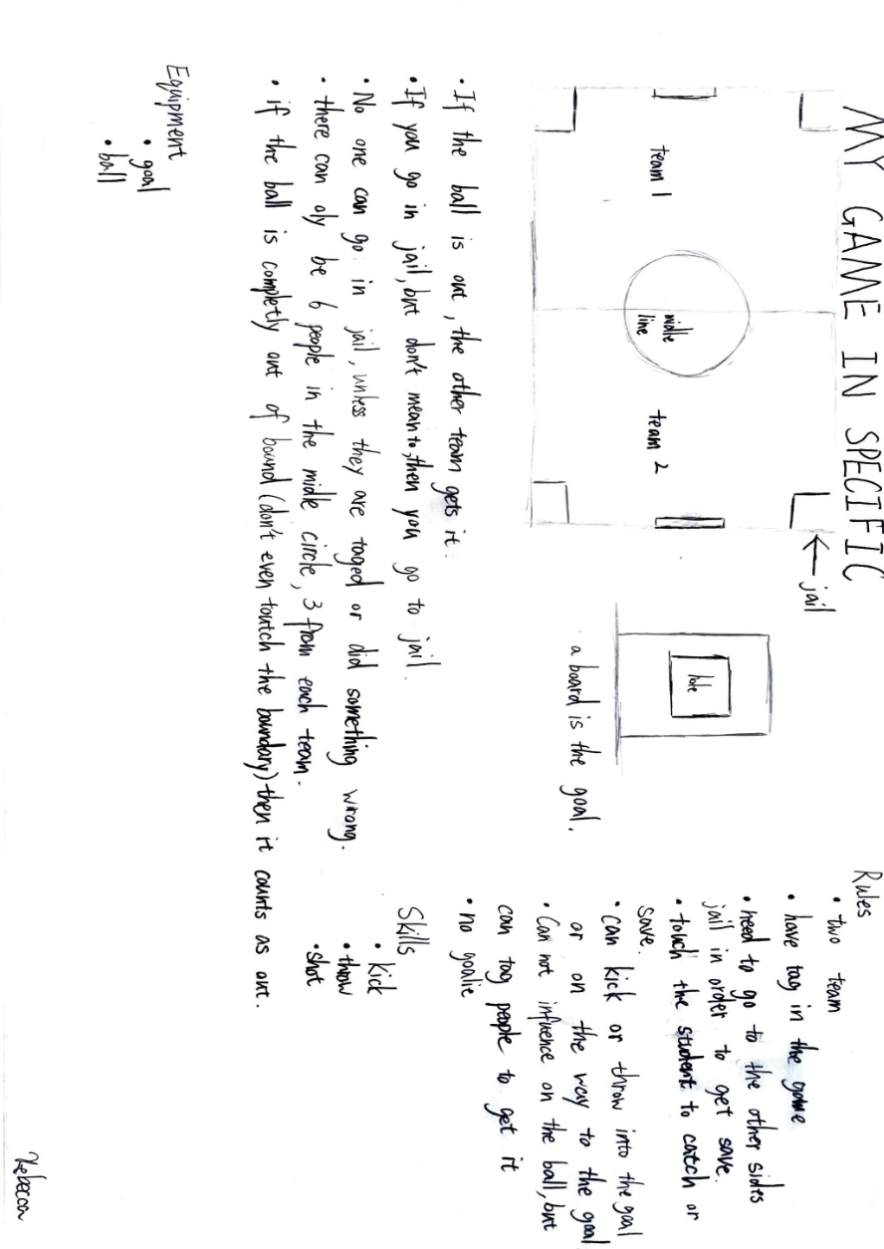 MY GAME IN SPECIFIC
jail
team 1
midle
line
team 2
hole
a board is the goal.
Rules
• two team
• have tag in the game
• need to go to the other sides
jail in order to get save.
• touch the student to catch or
save.
• can kick or throw into the goal
or on the way to the goal
• Can not influence on the ball, but
can tag people to get it
• no goalie
Skills
• kick
• throw
• shot
• If the ball is out, the other team gets it.
• If you go in jail, but don't mean to, then you go to jail.
• No one can go in jail, unless they are taged or did something wrong.
• there can oly be 6 people in the midle circle, 3 from each team.
• if the ball is completly out of bound (don't even toutch the boundary) then it counts as out.
Equipment
• goal
• ball
Rebecca